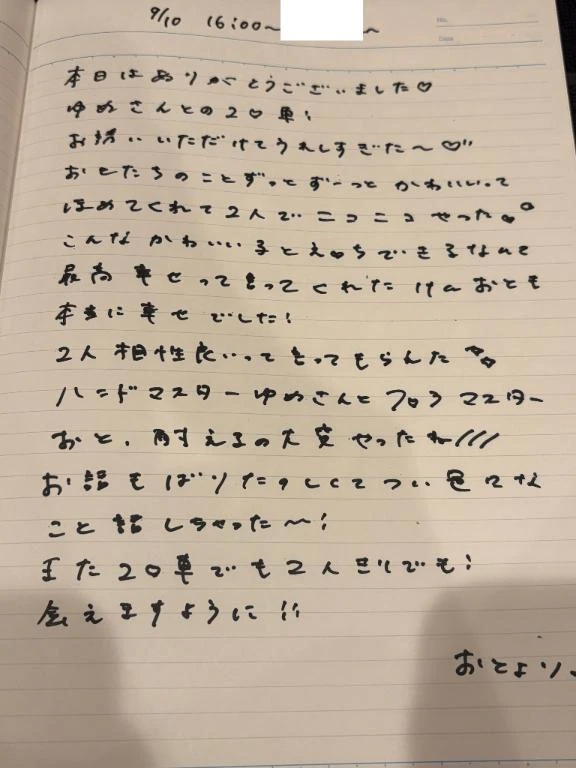 9/10 16:00~ ~
No.
Date
本日はありがとうございました♡
ゆめさんとの2○車!
お誘いいただけてうれしすぎた～♡"
おとたちのことずっとずーっとかわいいって
ほめてくれて2人でニコニコやった
こんなかわいい子とえ♡ちできるなんて
最高 幸せってきってくれたけんおとも
本当に幸せでした!
2人相性良いってきってもらんた
ハンドマスターゆめさんとフロラマスター
おと、耐えるの大変やったね///
お話もばりたのしくてつい色んな
こと話しちゃった～!
また2○車でも2人きりでも!
会えますように!!
おとより